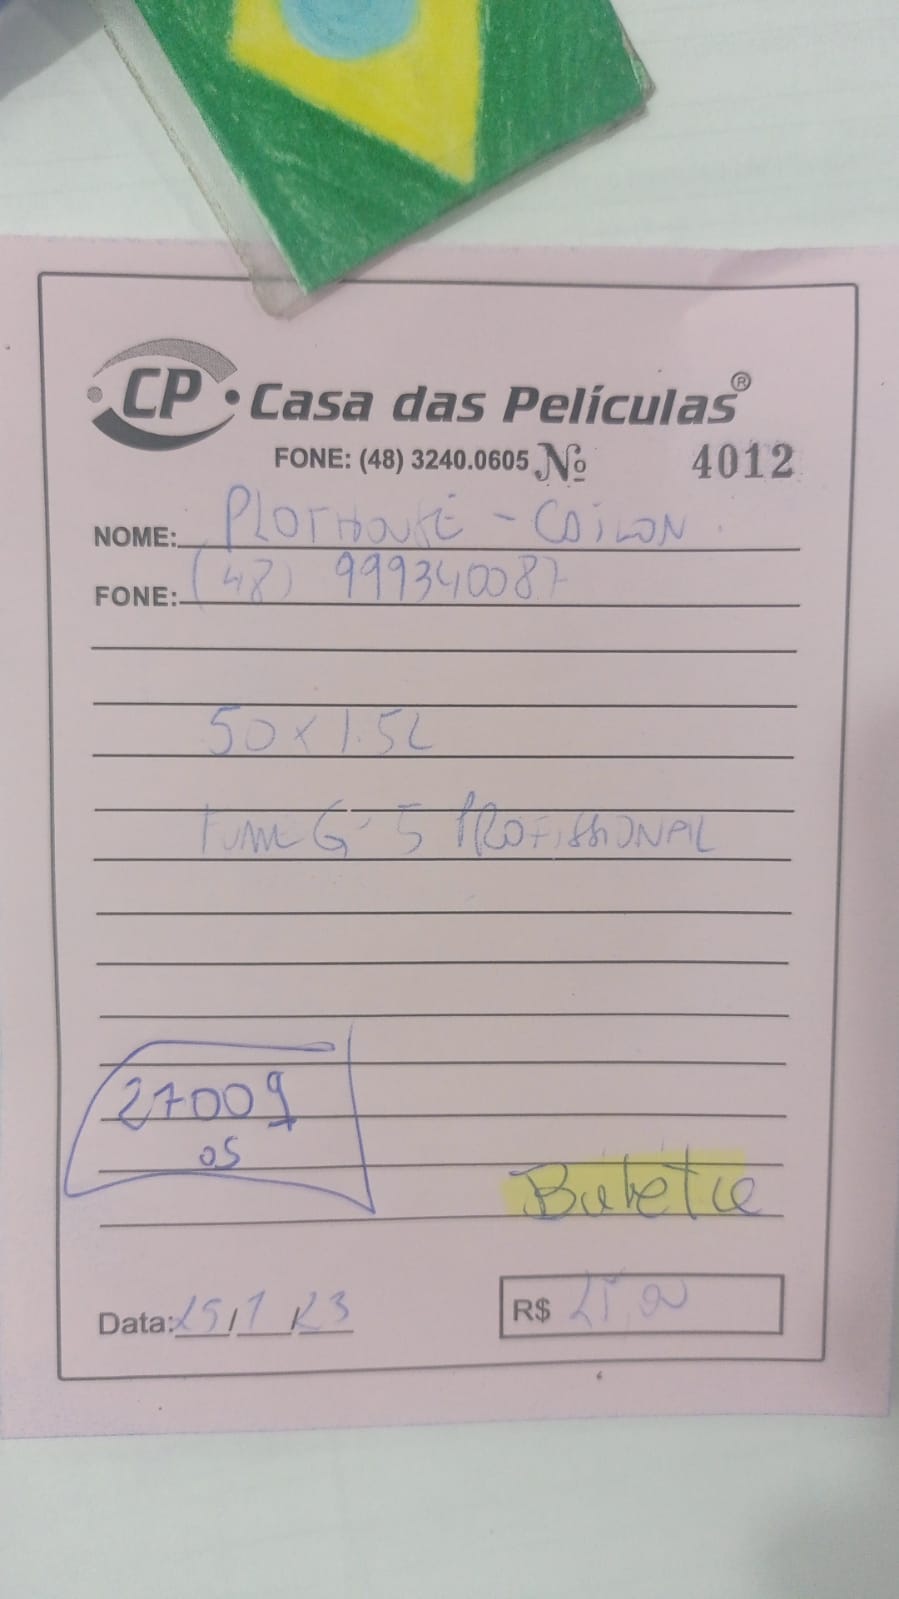 CP Casa das Películas®
FONE: (48) 3240.0605 Nº 4012
NOME: PLOTHOUSE -
FONE: (48) 999340087
50 x 1.52
FUME G-5 PROFISSIONAL
27009
OS
Data: 25/1/23 R$